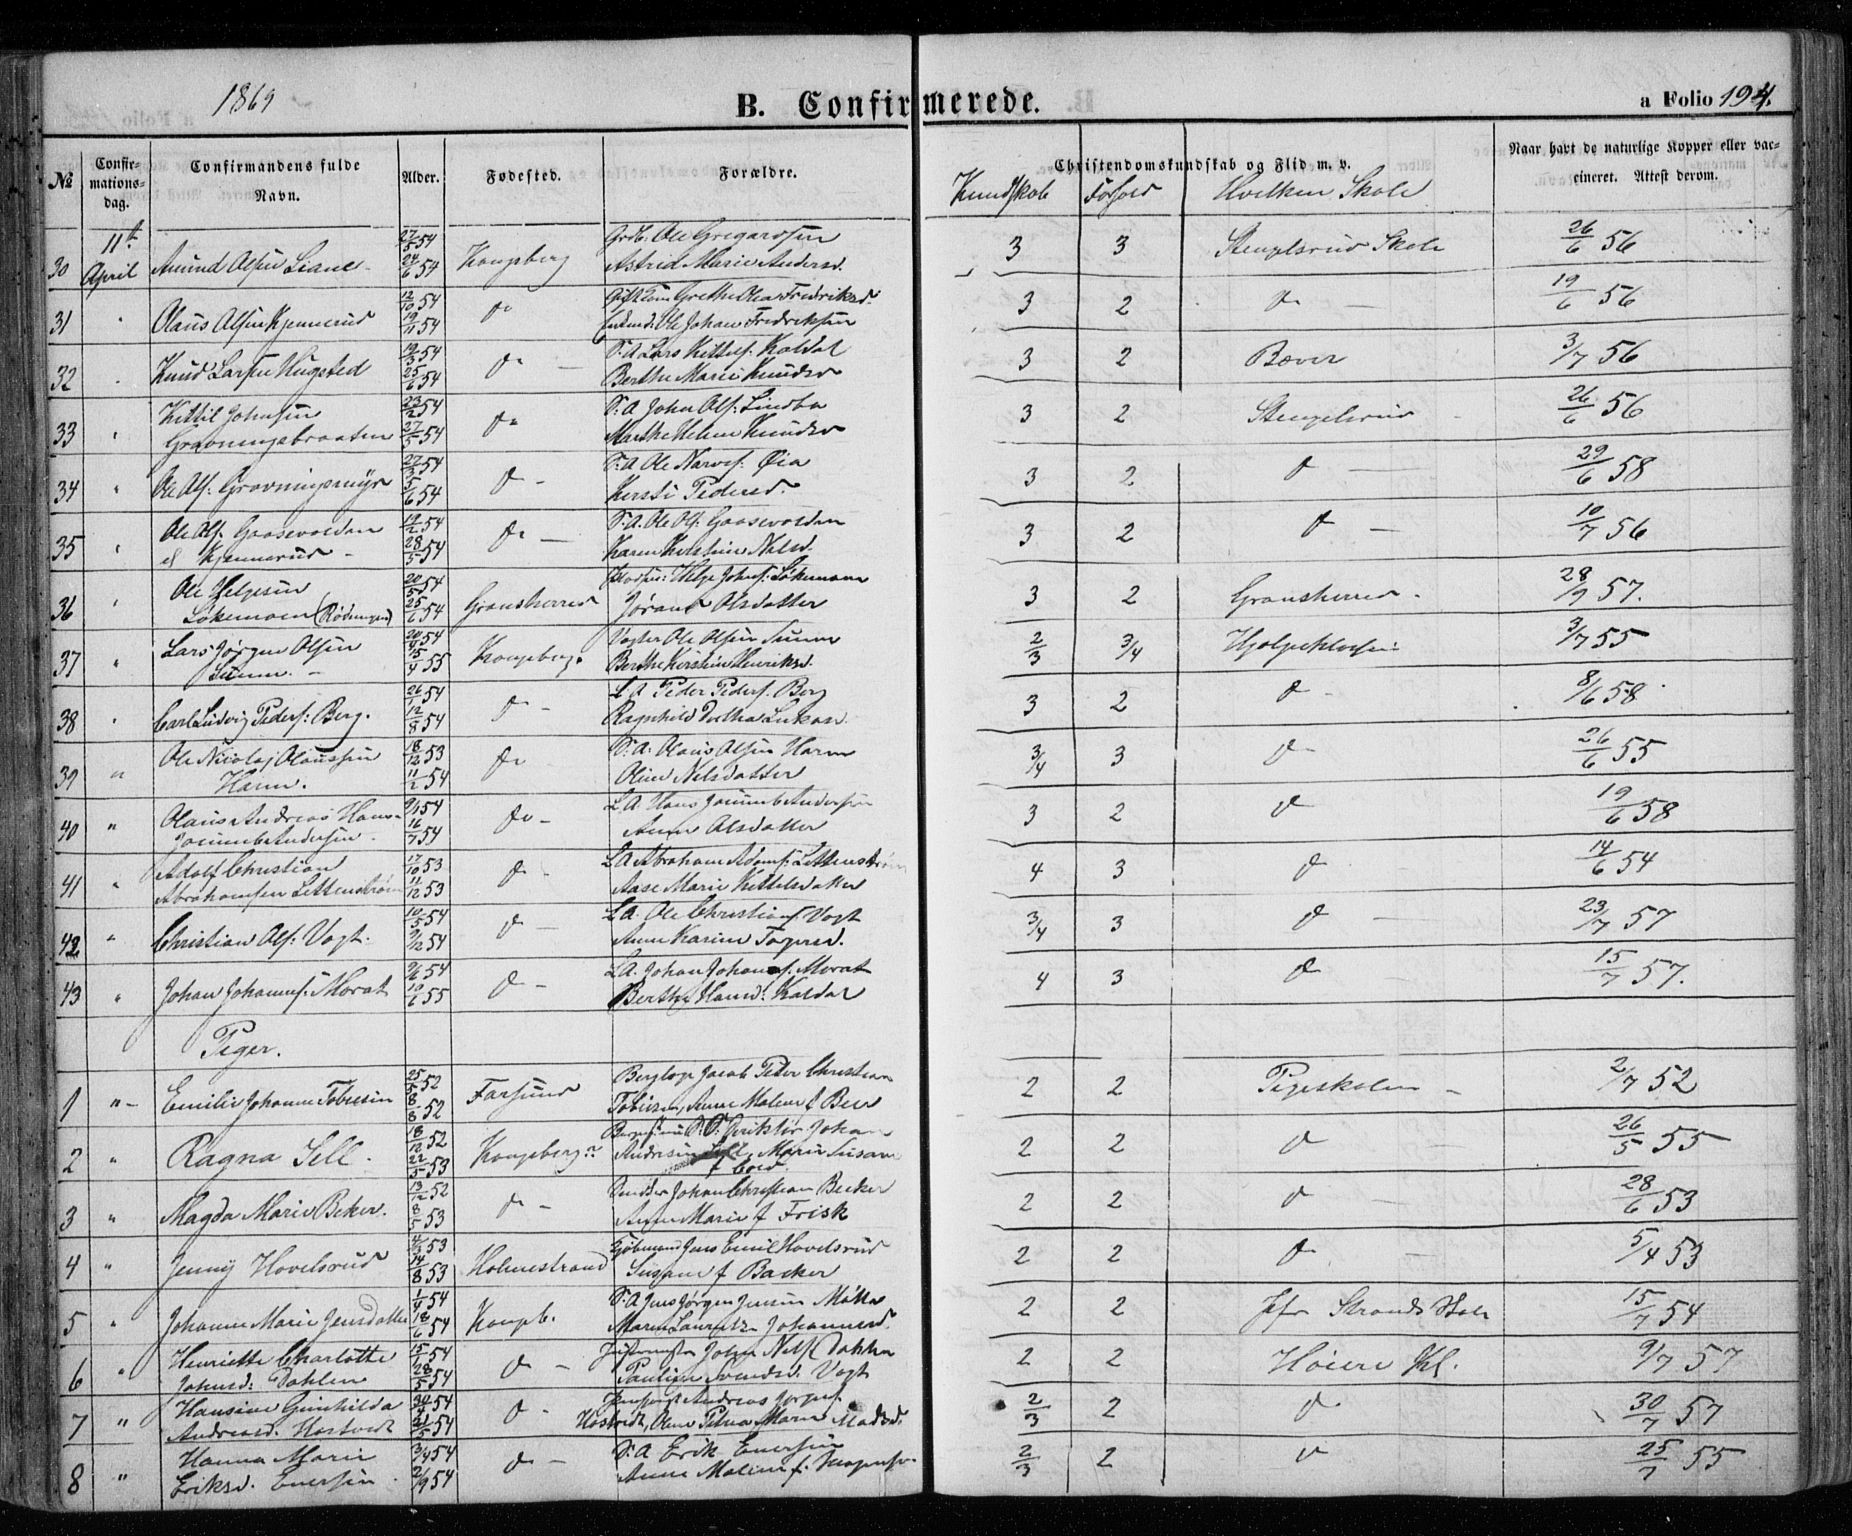 1869
B. Confirmerede.
a Folio 194.
No
Confirmationsdag.
Confirmandens fulde Navn.
Alder.
Fødested.
Forældre.
Christendomskundskab og Flid m. v.
Naar havt de naturlige Kopper eller vaccineret. Attest derom.
Kundskab Forhold Hvilken Skole
30 11te April Amund Olsen Liane 27/5 54 24/6 54 Kongsberg Ole Gregardsen Astrid Marie Andersd. 3 3 Stengelsrud Skole 26/6 56
31 " Olaus Olsen Kjennerud 12/10 54 19/11 54 do Grethe Olea Fredriksd. Ole Johan Fredriksen 3 2 do 19/6 56
32 " Knud Larsen Hugsted 19/3 54 25/6 54 do S. A. Lars Kittels. Koldal Berthe Marie Knudsd 3 2 Bæver 3/7 56
33 " Kittil Johnsen Gravningsbraaten 23/2 54 27/5 54 do S. A. John Ols. Lindbo Marthe Helene Knudsd 3 2 Stengelsrud 26/6 56
34 " Ole Ols. Gravningsmyr 27/3 54 5/6 54 do S. A. Ole Narves. Øia Kersti Pedersd. 3 2 do 29/6 58
35 " Ole Ols. Gaasevolden el Kjennerud 19/2 54 28/5 54 do S. A. Ole Ols. Gaasevolden Karen Kirstine Nelsd. 3 2 do 10/7 56
36 " Ole Helgesen Løkemoen (Rødningen) 20/5 54 25/6 54 Gransherred Helge Johns. Løkemoen Jørand Olsdatter 3 2 Gransherred 28/9 57.
37 " Lars Jørgen Olsen Lunn. 20/9 54 15/4 55 Kongsberg. Vogter Ole Olsen Lunn Berthe Kirstine Henriksd. 2/3 3/4 Hjelpeklassen 3/7 55
38 " Carl Ludvig Peders. Berg. 26/7 54 12/8 54 do L A Peder Peders. Berg Ragnhild Dorthea Lukasd. 3 2 do 8/6 58
39 " Ole Nicolaj Olaussen Harm. 18/12 53 11/2 54 do S. A. Olaus Olsen Harm Oline Nelsdatter 3/4 3 do 26/6 55
40 " Olaus Andreas Hans- Andersen 54 16/7 54 do L A. Hans Andersen Anne Olsdatter 3 2 do 19/6 58
41 " Adolf Christian Abrahamsen Lettenstrøm 17/10 53 11/12 53 do L A Abraham Adams. Lettenstrøm Aase Marie Kittelsdatter 4 3 do 14/6 54
42 " Christian Ols. Vogt. 10/5 54 9/12 54 do L A. Ole Christians. Vogt Anne Karine Torgersd. 3/4 3 do 23/7 57
43 " Johan Johannes. Morat 9/6 54 10/6 55 do L A. Johan Johans. Morat Berthe Hansd. Koldal 4 3 do 15/7 57.
Piger.
1 " Emilie Johanne Tobiesen 25/5 52 8/8 52 Farsund Jacob Peter Christian Tobiesen, Anne Malene f Beer 2 2 Pigeskolen 2/7 52
2 " Ragna Sell. 18/12 52 22/5 53 Kongsberg Johan Andersen Sell, Marie Susan f Cold. 2 2 do 26/5 55
3 " Magda Marie Beker. 13/12 52 8/5 53 do Johan Christian Becker Anne Marie f Frisk 2 2 do 28/6 53
4 " Jenny Hovelsrud 4/3 53 14/8 53 Holmestrand Kjøbmand Jens Emil Hovelsrud Susanne f Backer 2 2 do 5/4 53
5 " Johanne Marie Jensdatter 1/4 54 18/6 54 Kongsb. S. A Jens Jørgen Jensen Maren Lauretze Johannesd. 2 2 Jfr Strands Skole 15/7 54
6 " Henriette Charlotte Johnsd. Dahlen 15/1 54 28/5 54 do John Nels. Dahlen Pauline Svendsd. Vogt 2 2 Høiere Kl. 9/7 57
7 " Hansine Gunhilda Andreasd. Hostvedt 54 21/5 54 do Andreas Jørgens. Hostvedt, Oline Petrea Marie Madsd. 2/3 2 do 30/7 57
8 " Hanna Marie Eriksd. Enersen 3/4 54 2/9 54 do S. A Erik Enersen Anne Malene f. 2/3 2 do 25/7 55